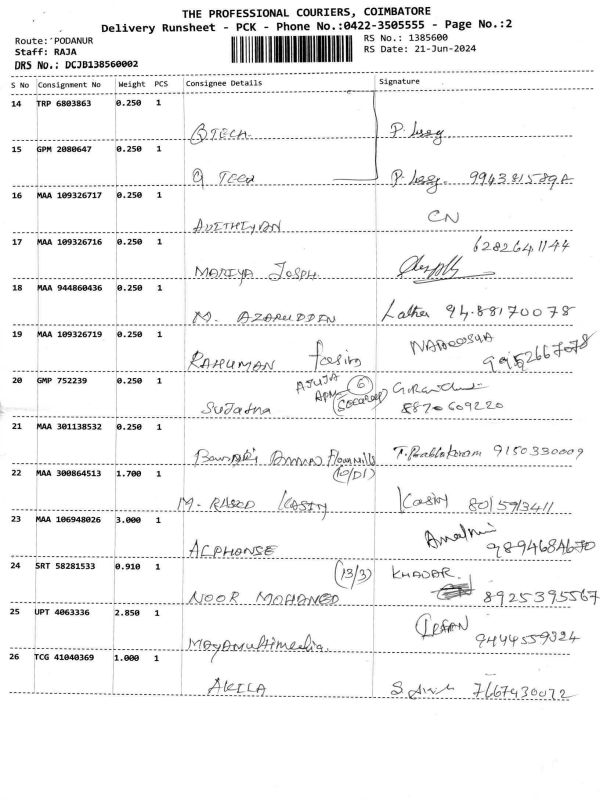 THE PROFESSIONAL COURIERS, COIMBATORE
Delivery Runsheet - PCK - Phone No.:0422-3505555 - Page No.:2
Route: PODANUR
RS No.: 1385600
Staff: RAJA
RS Date: 21-Jun-2024
DRS No.: DCJB138560002
S No Consignment No Weight PCS Consignee Details Signature
14 TRP 6803863 0.250 1
15 GPM 2080647 0.250 1
9943815892
16 MAA 109326717 0.250 1
CN
17 MAA 109326716 0.250 1
6282641144
MARIYA JOSPH
18 MAA 944860436 0.250 1
M. AZARUDDIN Latha 94.88170078
19 MAA 109326719 0.250 1
RAHUMAN 9952667078
20 GMP 752239 0.250 1
6
Sujatha 8870609220
21 MAA 301138532 0.250 1
Flourmills 9150330009
22 MAA 300864513 1.700 1
(10/D1)
M. RASCO 8015913411
23 MAA 106948026 3.000 1
ALPHONSE 9894684670
24 SRT 58281533 0.910 1
(13/3) KHADAR.
NOOR MOHAMED 8925395567
25 UPT 4063336 2.850 1
IRFAN
Mayamultimedia. 9444559324
26 TCG 41040369 1.000 1
AKILA 7667430072